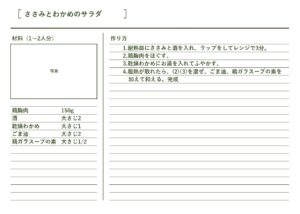 ささみとわかめのサラダ
材料(1〜2人分)
写真
鶏胸肉 150g
酒 大さじ2
乾燥わかめ 大さじ1
ごま油 大さじ2
鶏ガラスープの素 大さじ1/2
作り方
1.耐熱皿にささみと酒を入れ、ラップをしてレンジで3分。
2.鶏胸肉をほぐす。
3.乾燥わかめにお湯を入れてふやかす。
4.粗熱が取れたら、(2)(3)を混ぜ、ごま油、鶏ガラスープの素を
加えて和える。完成